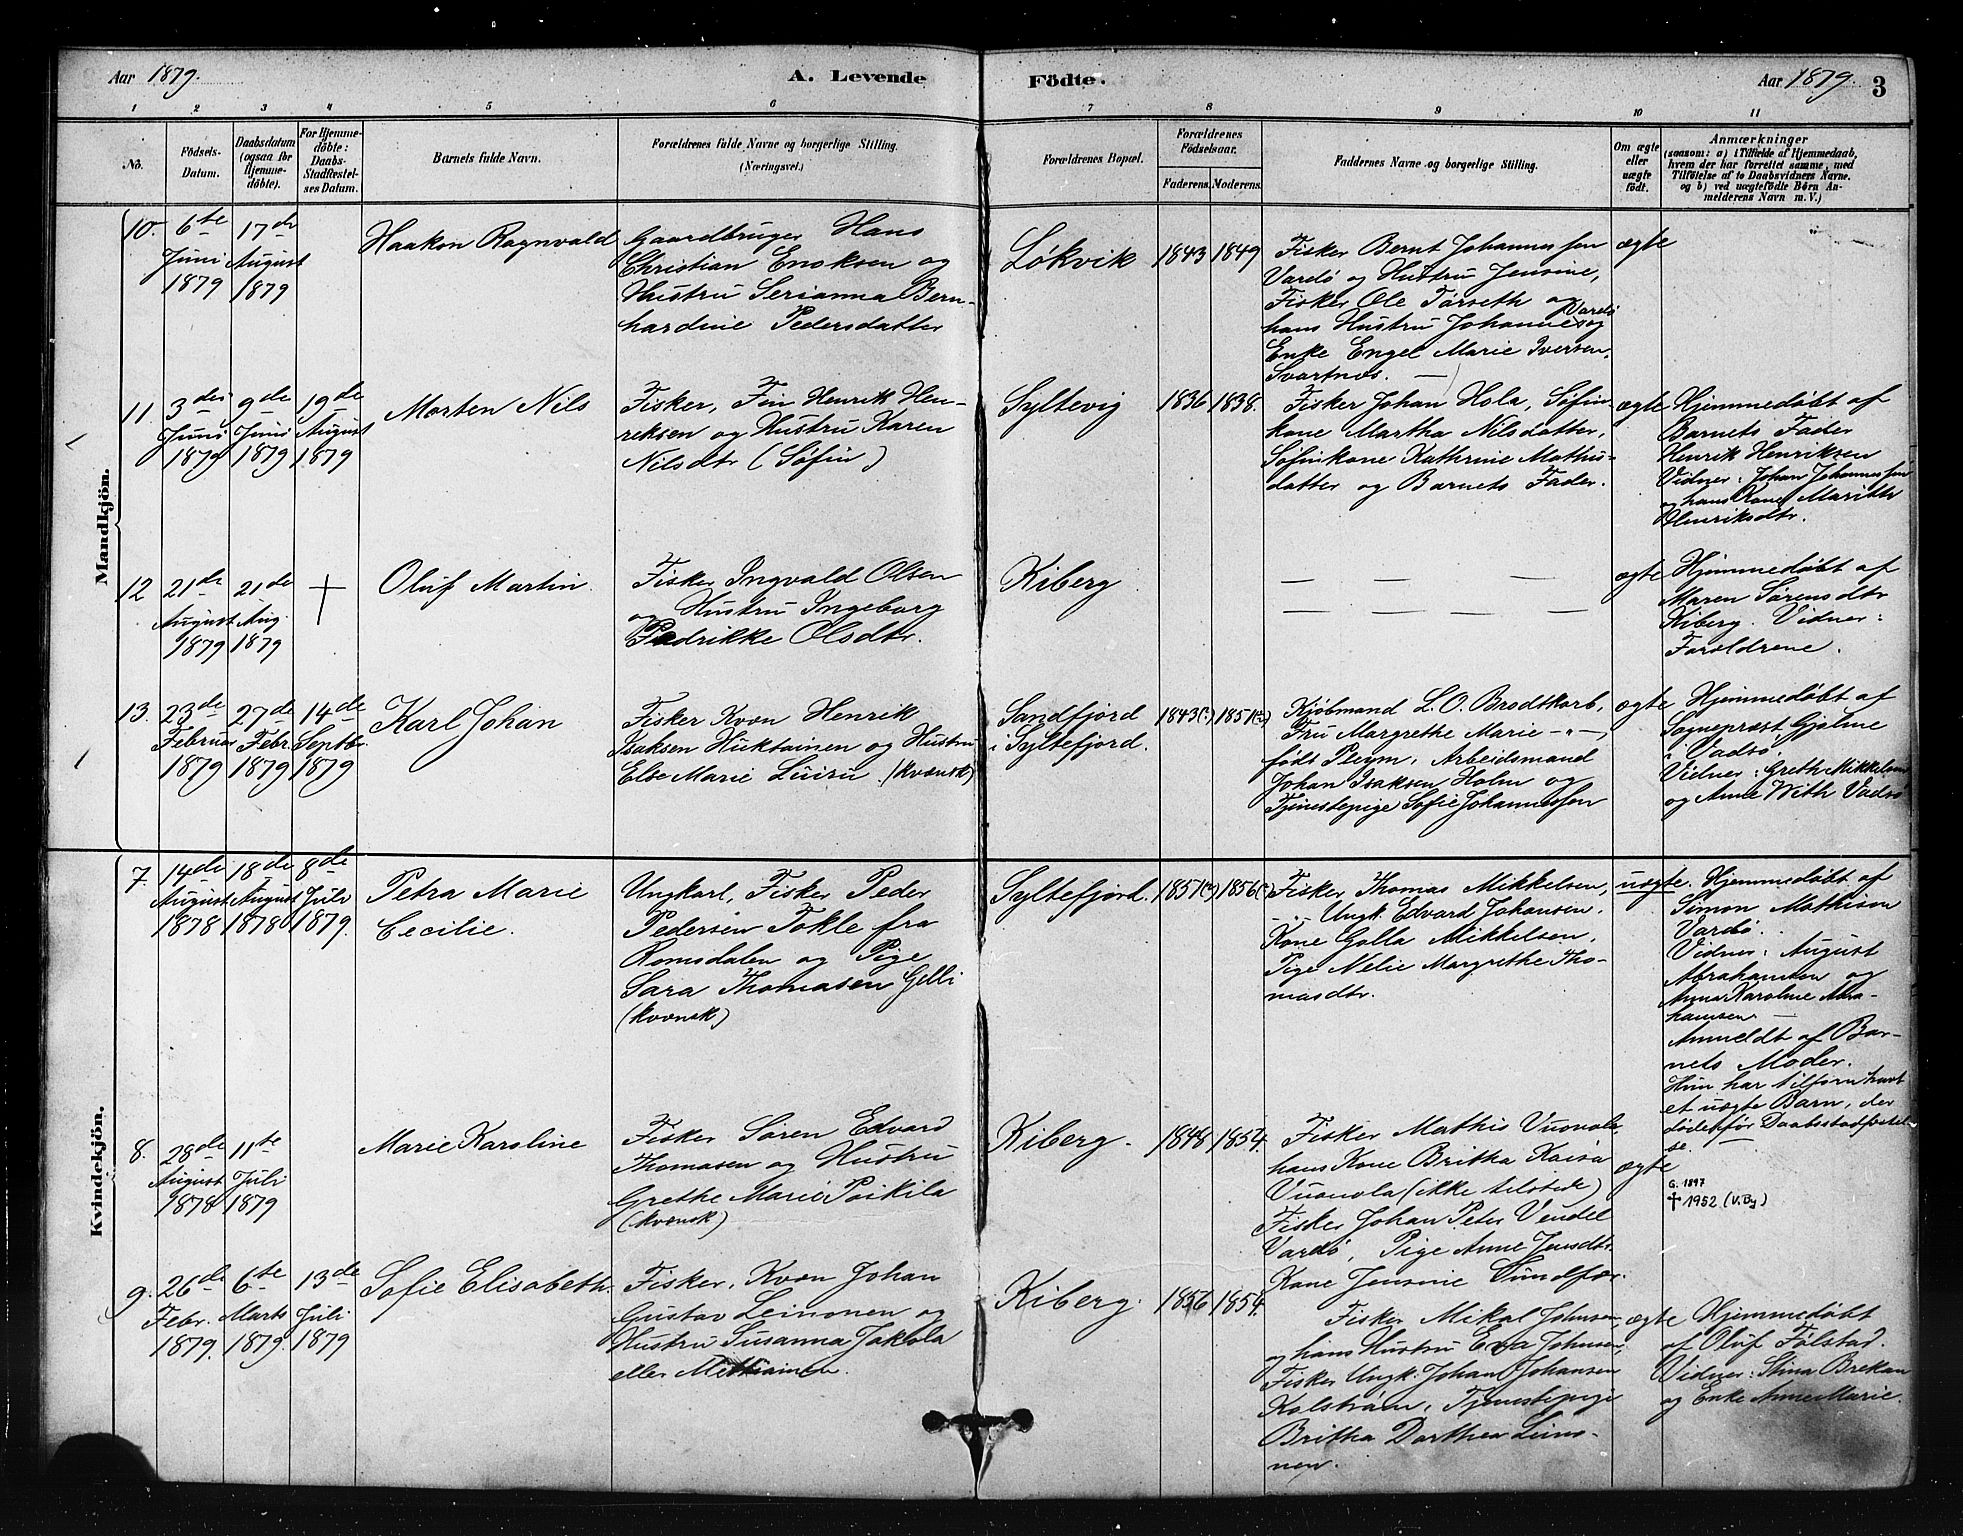 Aar 1879.
A. Levende Födte.
Aar 1879.
3
1 2 3 4 5 6 7 8 9 10 11
No.
Födsels-
Datum.
Daabsdatum
(ogsaa for
Hjemme-
döbte).
For Hjemme-
döbte:
Daabs-
Stadfæstel-
ses Datum.
Barnets fulde Navn.
Forældrenes fulde Navne og borgerlige Stilling.
(Næringsvei.)
Forældrenes Bopæl.
Forældrenes
Födselsaar.
Faderens.
Moderens.
Faddernes Navne og borgerlige Stilling.
Om ægte
eller
uægte
födt.
Anmærkninger
(saasom: a) i Tilfælde af Hjemmedaab,
hvem der har forrettet samme, med
Tilföielse af to Daabsvidners Navne.
og b) ved uægtefödte Börn An-
melderens Navn m. V.)
Mandkjön.
10.
6te
Juni
1879
17de
August
1879
Haakon Ragnvald
Gaardbruger Hans
Christian Enoksen og
Hustru Serianna Bern-
hardine Pedersdatter
Løkvik
1843
1849
Fisker Bernt Johannessen
Vardø og Hustru Jensine,
Fisker Ole Torseth og
hans Hustru Johanne Vardø og
Enke Engel Marie Iversen
Svartnes.
ægte
11
3die
Juni
1879
9de
Juni
1879
19de
August
1879
Morten Nils
Fisker, Fin Henrik Hen-
riksen og Hustru Karen
Nilsdtr (Søfin)
Syltevig
1836
1838.
Fisker Johan Hola, Søfin-
kone Martha Nilsdatter,
Søfinkone Kathrine Mathis-
datter og Barnets Fader.
ægte
Hjemmedøbt af
Barnets Fader
Henrik Henriksen
Vidner: Johan Johannessen
og hans Kone Marith
Henriksdtr.
12
21de
August
1879
21de
Aug.
1879
†
Oluf Martin
Fisker Ingvald Olsen
og Hustru Ingeborg
Pedrikke Olsdtr.
Kiberg
— — — —
— — — —
ægte
Hjemmedøbt af
Maren Sørensdtr
Kiberg. Vidner:
Forældrene.
13.
23de
Februar
1879
27de
Febr.
1879
14de
Septbr.
1879
Karl Johan
Fisker Kvæn Henrik
Isaksen Huktainen og Hustru
Else Marie Luisu (kvænsk)
Sandfjord
i Syltefjord.
1843(?)
1851(?)
Kjøbmand L. O. Brodtkorb,
Fru Margrethe Marie —"—,
født Pleym, Arbeidsmand
Johan Isaksen Holm og
Tjenestepige Sofie Johannessen
ægte
Hjemmedøbt af
Sognepræst Gjølme
i Vadsø
Vidner: Grethe Mikkelsen
og Anne With Vadsø
Kvindekjön.
7.
14de
August
1878
18de
August
1878
8de
Juli
1879.
Petra Marie
Cecilie.
Ungkarl, Fisker Peder
Pedersen Tokle fra
Romsdalen og Pige
Sara Thomasen Gelli
(kvænsk)
Syltefjord.
1851(?)
1856(?)
Fisker Thomas Mikkelsen,
Ungk. Edvard Johansen.
Kone Golla Mikkelsen,
Pige Nelie Margrethe Tho-
masdtr.
uægte.
Hjemmedøbt af
Simon Mathison
Vardø.
Vidner: August
Abrahamsen og
Anna Karoline Abra-
hamsen —
Anmeldt af Bar-
nets Moder.
Hun har tilforn havt
et uægte Barn, der
døde før Daabsstadfæstel-
se.
8.
28de
August
1878
11te
Juli
1879
Marie Karoline
Fisker Søren Edvard
Thomasen og Hustru
Grethe Marie Poikila
(kvænsk)
Kiberg.
1848
1854.
Fisker Mathis Vuonola,
hans Kone Britha Kaisa
Vuonola (ikke tilstede)
Fisker Johan Peter Vendel
Vardø, Pige Anne Jensdtr.
Kone Jensine Sundfær.
ægte
G. 1897
† 1952 (V. By)
9.
26de
Febr.
1879.
6te
Marts
1879.
13de
Juli
1879
Sofie Elisabeth.
Fisker, Kvæn Johan
Gustav Leinonen og
Hustru Susanna Jakola
eller Mattainen.
Kiberg.
1856
1854.
Fisker Mikal Johnsen,
og hans Hustru Eva Johnsen,
Fisker Ungk. Johan Johansen
Kalstrøm, Tjenestepige
Britha Dorthea Leino-
nen.
ægte
Hjemmedøbt
af Oluf Følstad.
Vidner: Stina Brekan
og Enke Anne Marie.